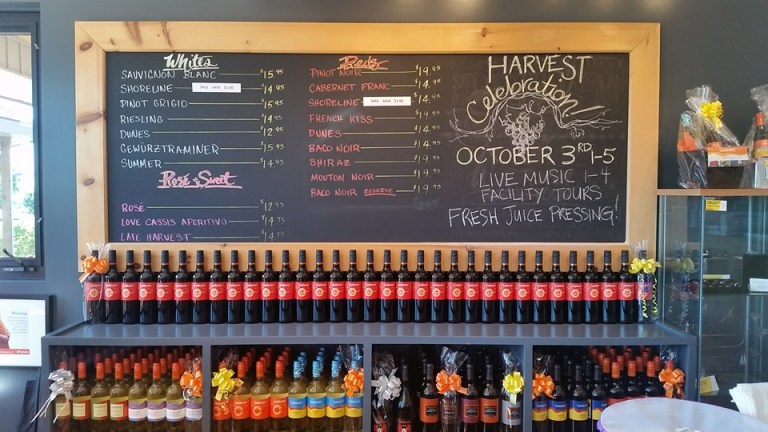 Whites
SAUVIGNON BLANC $15.95
SHORELINE $14.95
PINOT GRIGIO $15.95
RIESLING $14.95
DUNES $12.95
GEWÜRZTRAMINER $15.95
SUMMER $14.95
Rosé & Sweet
ROSÉ $12.95
LOVE CASSIS APERITIVO $14.75
LATE HARVEST $14.95
Reds
PINOT NOIR $19.95
CABERNET FRANC $14.95
SHORELINE $14.95
FRENCH KISS $19.95
DUNES $14.95
BACO NOIR $14.95
SHIRAZ $19.95
MOUTON NOIR $19.95
BACO NOIR RESERVE $19.95
HARVEST
Celebration!
OCTOBER 3RD 1-5
LIVE MUSIC 1-4
FACILITY TOURS
FRESH JUICE PRESSING!